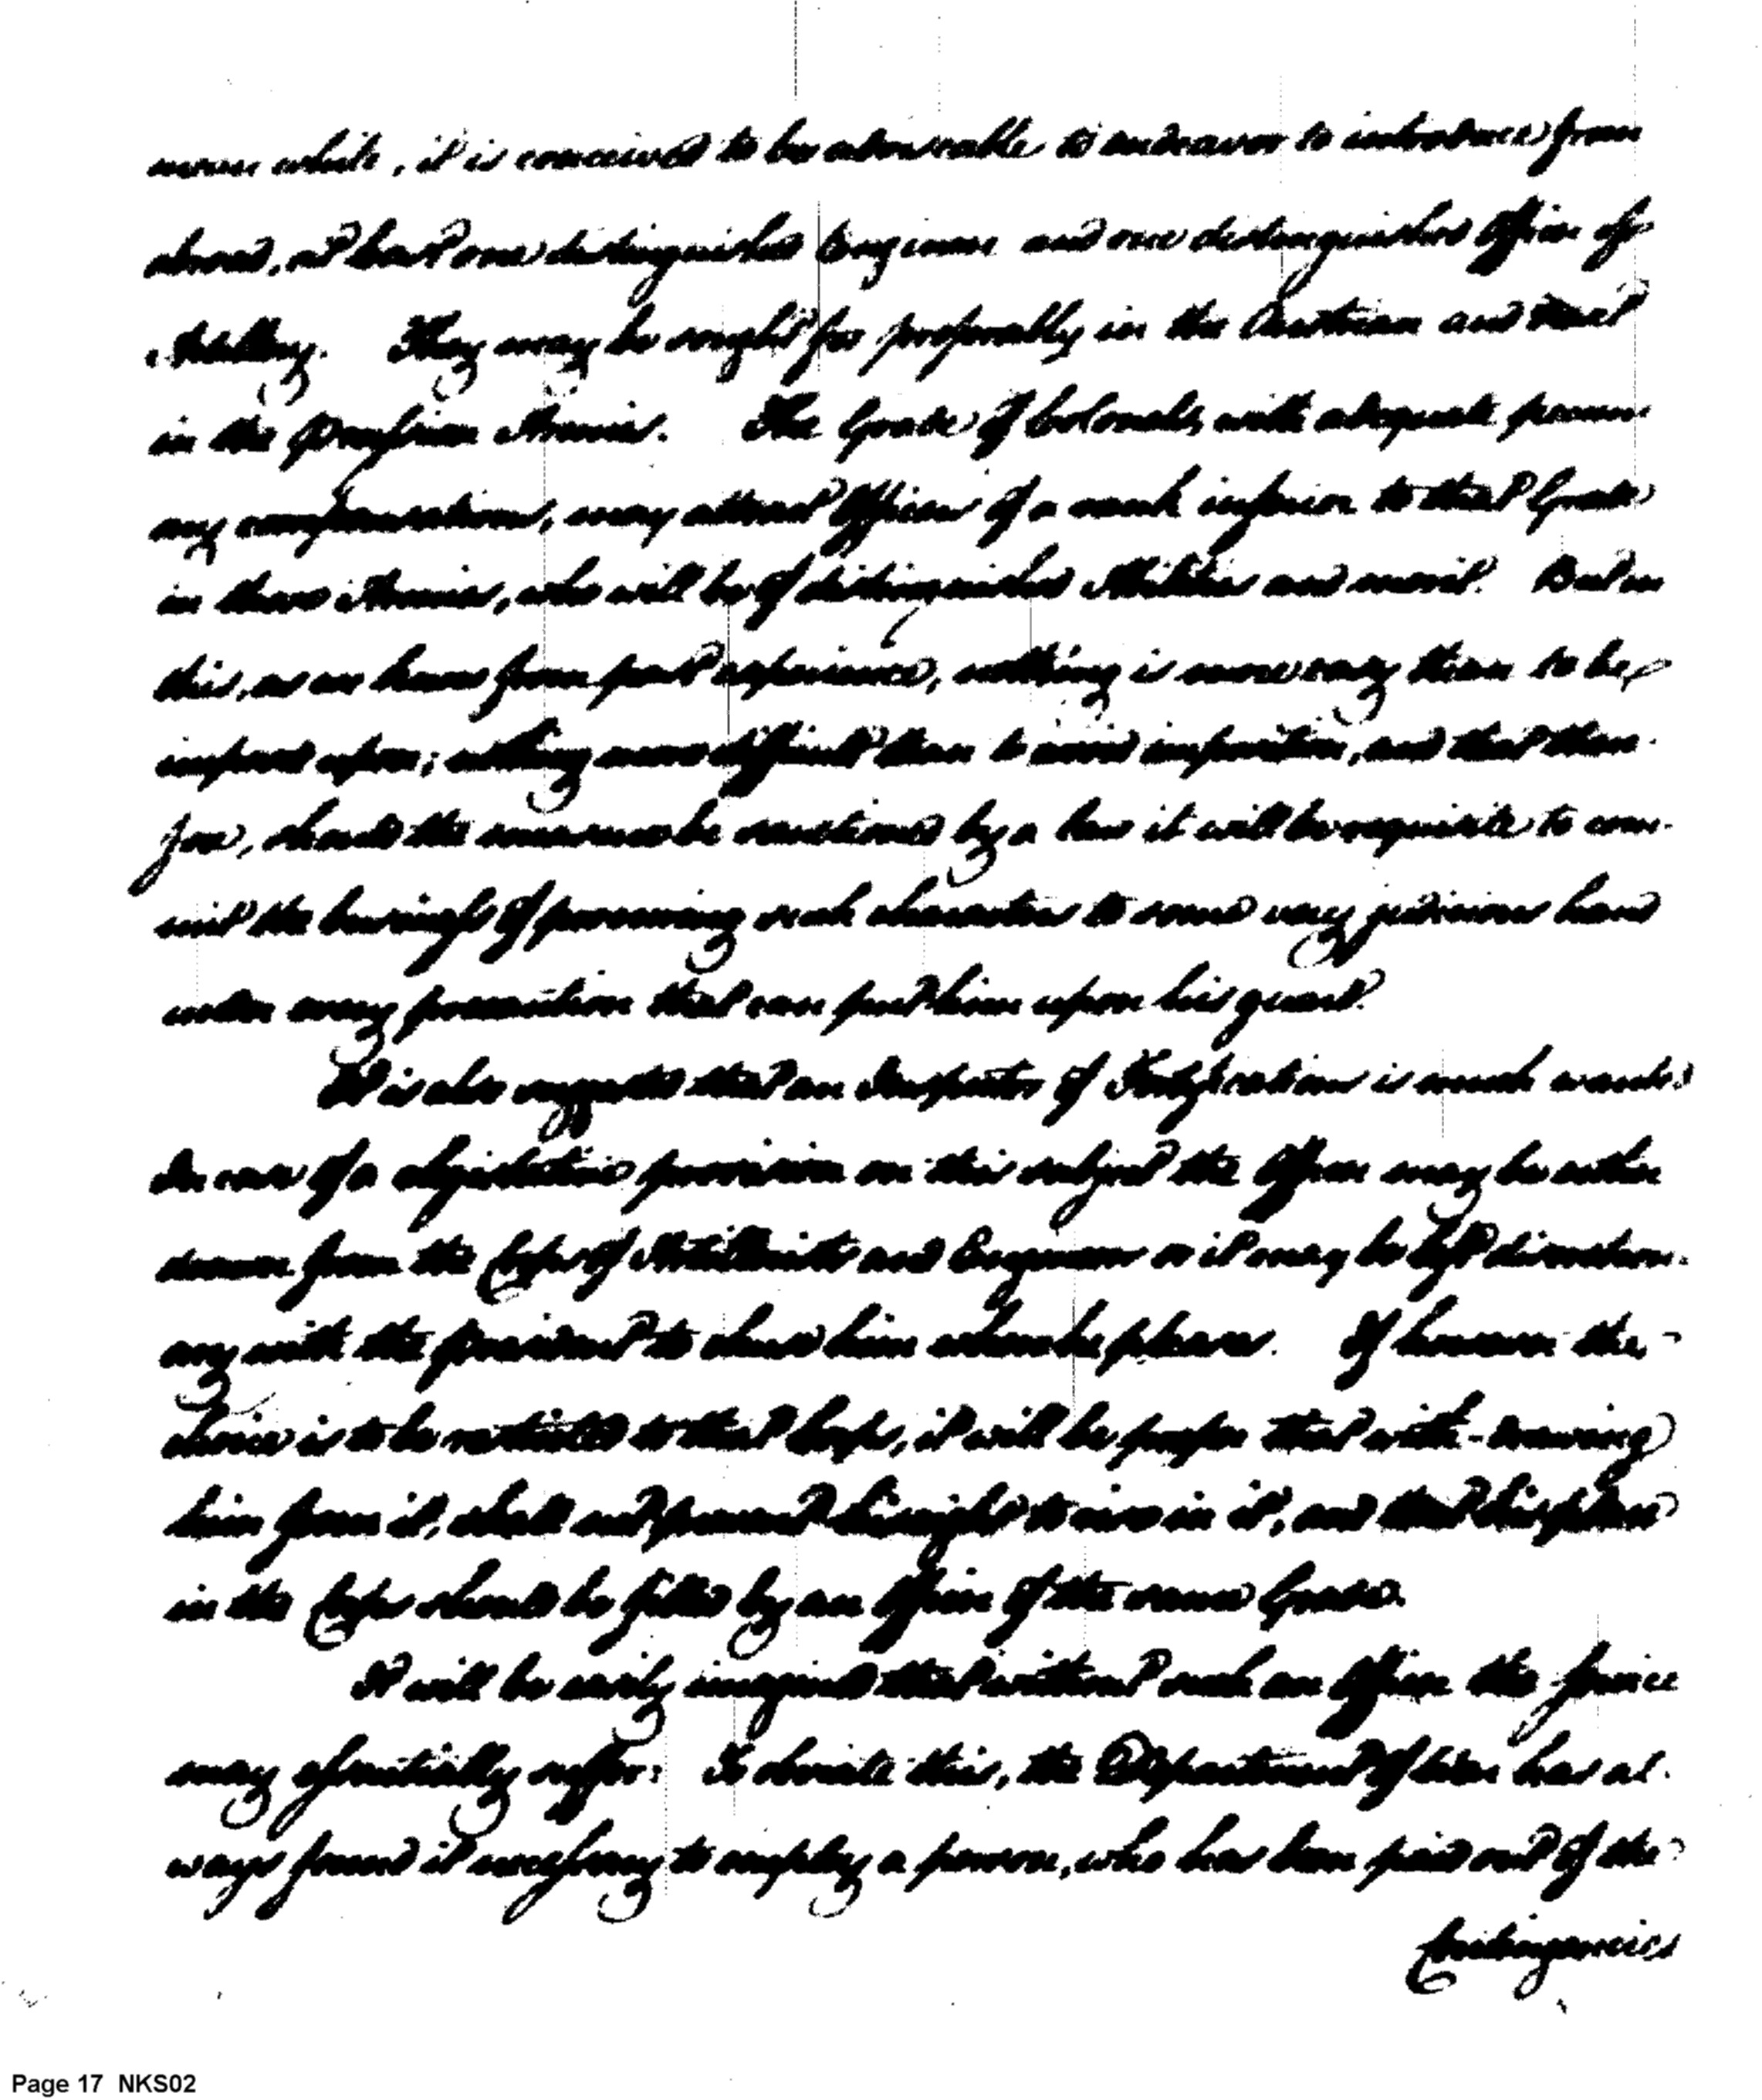 mean while, it is conceived to be adviseable to endeavor to introduce from
abroad, at least one distinguished Engineer and one distinguished Officer of
Artillery. They may be sought for preferably in the Austrian and next
in the Prussian Armies. The Grade of Colonels, with adequate pecuni-
ary compensations, may attract Officers of a rank inferior to that Grade
in those Armies, who will be of distinguished Abilities and merit. But in
this, as we know from past experience, nothing is more easy than to be
imposed upon; nothing more difficult than to avoid imposition, and that there-
fore, should the measure be sanctioned by a law it will be requisite to com-
mit the business of procuring such characters to some very judicious hand
under every precaution that can put him upon his guard.
It is also suggested that an Inspector of Fortifications is much wanted
In case of a legislative provision on this subject the Officer may be either
drawn from the Corps of Artillerists and Engineers or it may be left discretion-
ary with the president to choose him where he pleases. If however the
choice is to be restricted to that Corps, it will be proper that with-drawing
him from it, shall not prevent his right to rise in it, and that his place
in the Corps should be filled by an officer of the same Grade.
It will be easily imagined that without such an Officer the service
may essentially suffer: To obviate this, the Department of War has al-
ways found it necessary to employ a person, who has been paid out of the
Contingencies
Page 17 NKS02